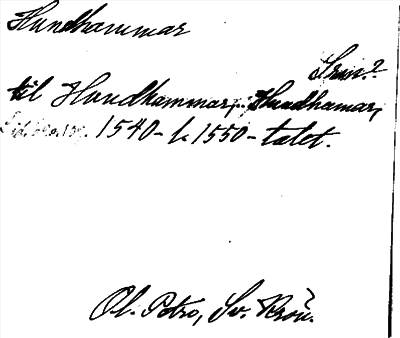 Hundhammar
Svin?
til Hundhammar, Hundhamar,
1540- t. 1550-talet.
Ol. Petro, Sv. Krön.